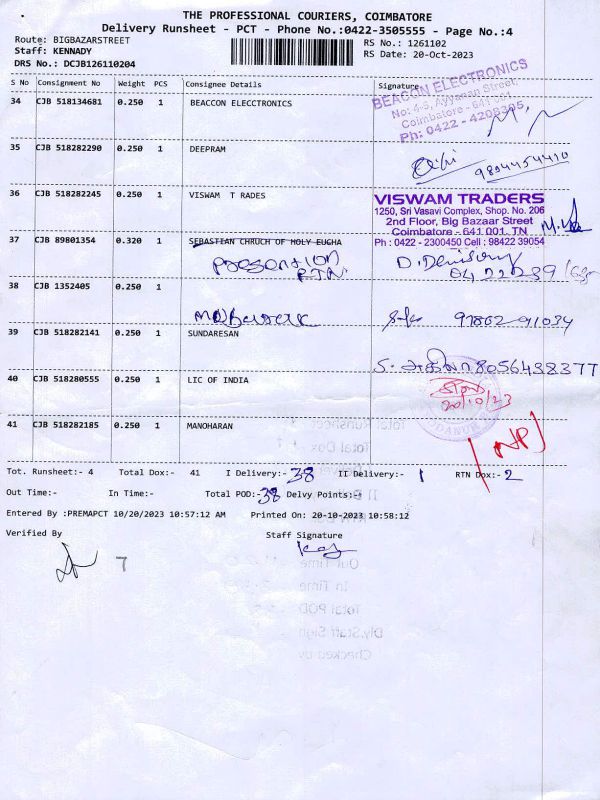 THE PROFESSIONAL COURIERS, COIMBATORE
Delivery Runsheet - PCT - Phone No.:0422-3505555 - Page No.:4
Route: BIGBAZARSTREET RS No.: 1261102
Staff: KENNADY RS Date: 20-Oct-2023
DRS No.: DCJB126110204
S No Consignment No Weight PCS Consignee Details Signature
34 CJB 518134681 0.250 1 BEACON ELECCTRONICS
BEACON ELECTRONICS
No: 4-6, Ayyanan Street,
Coimbatore - 641 001.
Ph: 0422 - 4209395
35 CJB 518282290 0.250 1 DEEPRAM
9894454410
36 CJB 518282245 0.250 1 VISWAM T RADES
VISWAM TRADERS
1250, Sri Vasavi Complex, Shop. No. 206
2nd Floor, Big Bazaar Street
Coimbatore - 641 001. TN
Ph : 0422 - 2300450 Cell : 98422 39054
37 CJB 89801354 0.320 1 SEBASTIAN CHRUCH OF HOLY EUCHA
Presention
38 CJB 1352405 0.250 1
39 CJB 518282141 0.250 1 SUNDARESAN
S. அகிலா 8056438377
40 CJB 518280555 0.250 1 LIC OF INDIA
20/10/23
41 CJB 518282185 0.250 1 MANOHARAN
NP
Tot. Runsheet:- 4 Total Dox:- 41 I Delivery:- 38 II Delivery:- 1 RTN Dox:- 2
Out Time:- In Time:- Total POD:- 38 Delvy Points:-
Entered By :PREMAPCT 10/20/2023 10:57:12 AM Printed On: 20-10-2023 10:58:12
Verified By Staff Signature
7